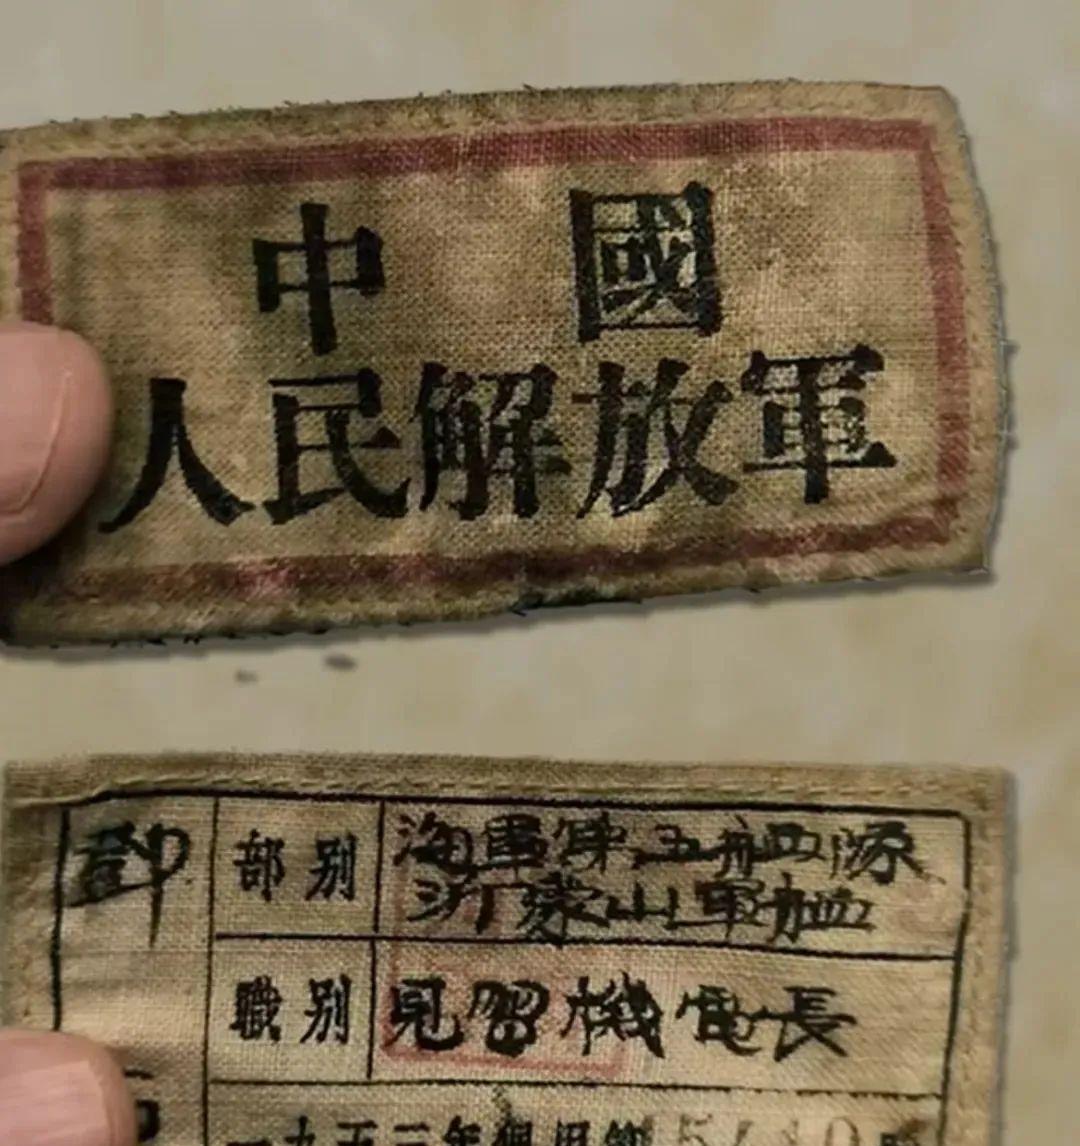 中國
人民解放軍
鄧
部别
海軍第五艦隊
沂蒙山軍艦
職别
見習機電長
一九五二年佩用